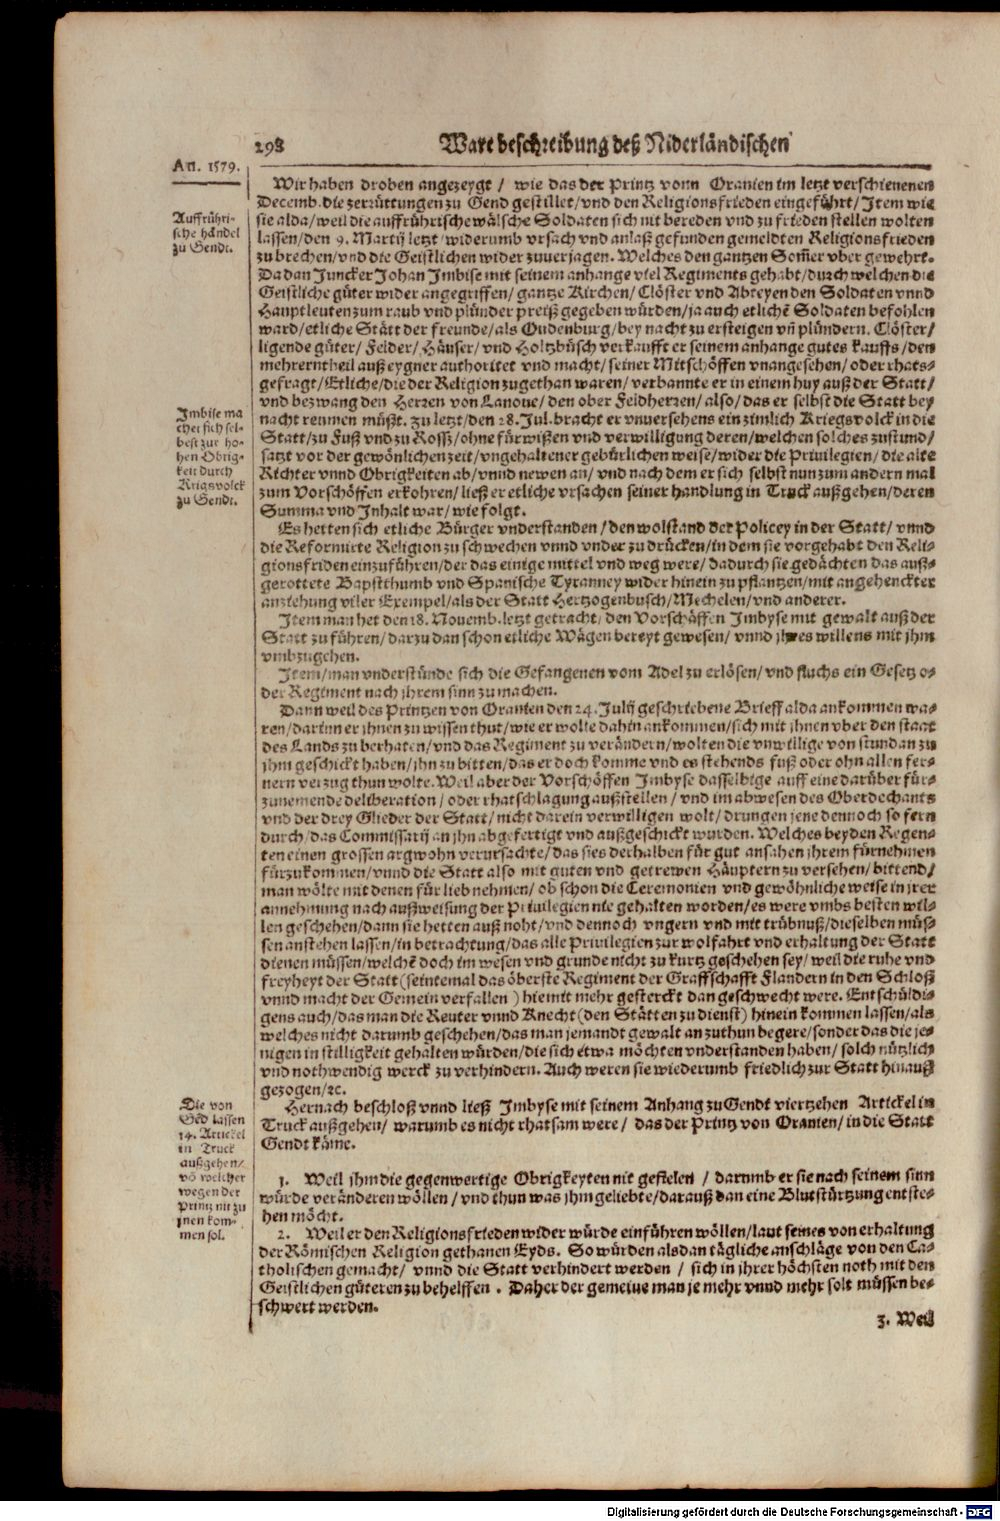 298 Ware beschreibung deß Niderländischen
An. 1579.
Wir haben droben angezeygt / wie das der Printz vonn Oranien im letzt verschienenen
Decemb. die zerrüttungen zu Gend gestillet / vnd den Religionsfrieden eingeführt / Item wie
Auffrühri-
sche händel
zu Gendt.
sie alda / weil die auffrührische wälsche Soldaten sich nit bereden vnd zu frieden stellen wolten
lassen / den 9. Martij letzt / widerumb vrsach vnd anlaß gefunden gemeldten Religionsfrieden
zu brechen / vnd die Geistlichen wider zuuerjagen. Welches den gantzen Som̃er vber gewehrt.
Da dan Juncker Johan Imbise mit seinem anhange viel Regiments gehabt / durch welchen die
Geistliche güter wider angegriffen / gantze Kirchen / Clöster vnd Abteyen den Soldaten vnnd
Hauptleuten zum raub vnd plünder preiß gegeben würden / ja auch etlichẽ Soldaten befohlen
ward / etliche Stätt der freunde / als Oudenburg / bey nacht zu ersteigen vñ plündern. Clöster /
ligende güter / Felder / Häuser / vnd Holtzbüsch verkaufft er seinem anhange gutes kauffs / den
mehrerntheil auß eygner authoritet vnd macht / seiner Mitschöffen vnangesehen / oder rhats-
gefragt / Etliche / die der Religion zugethan waren / verbannte er in einem huy auß der Statt /
vnd bezwang den Herren von Lanoue / den ober Feldherren / also / das er selbst die Statt bey
Imbise ma
chet sich sel-
best zur ho-
hen Obrig-
keit durch
Krigsvolck
zu Gendt.
nacht reumen müßt. zu letzt / den 28. Jul. bracht er vnuersehens ein zimlich Kriegsvolck in die
Statt / zu Fuß vnd zu Ross / ohne fürwißen vnd verwilligung deren / welchen solches zustund /
satzt vor der gewönlichen zeit / vngehaltener gebürlichen weise / wider die Priuilegien / die alte
Richter vnnd Obrigkeiten ab / vnnd newen an / vnd nach dem er sich selbst nun zum andern mal
zum Vorschöffen erkohren / ließ er etliche vrsachen seiner handlung in Truck außgehen / deren
Summa vnd Inhalt war / wie folgt.
Es hetten sich etliche Bürger vnderstanden / den wolstand der Policey in der Statt / vnnd
die Reformirte Religion zu schwechen vnnd vnder zu drücken / in dem sie vorgehabt den Reli-
gionsfriden einzuführen / der das einige mittel vnd weg were / dadurch sie gedächten das auß-
gerottete Bapstthumb vnd Spanische Tyranney wider hinein zu pflantzen / mit angehenckter
anziehung viler Exempel / als der Statt Hertzogenbusch / Mechelen / vnd anderer.
Item man het den 18. Nouemb. letzt getracht / den Vorschöffen Imbyse mit gewalt auß der
Statt zu führen / darzu dan schon etliche Wägen bereyt gewesen / vnnd jhres willens mit jhm
vmbzugehen.
Item / man vnderstünde sich die Gefangenen vom Adel zu erlösen / vnd fluchs ein Gesetz o-
der Regiment nach jhrem sinn zu machen.
Dann weil des Printzen von Oranien den 24. Julij geschriebene Brieff alda ankommen wa-
ren / darinn er jhnen zu wissen thut / wie er wolte dahin ankommen / sich mit jhnen vber den staat
des Lands zu berhaten / vnd das Regiment zu verändern / wolten die vnwillige von stund an zu
jhm geschickt haben / jhn zu bitten / das er doch komme vnd es stehends fuß oder ohn allen fer-
nern verzug thun wolte. Weil aber der Vorschöffen Imbyse dasselbige auff eine darüber für-
zunemende deliberation / oder rhatschlagung außstellen / vnd im abwesen des Oberdechants
vnd der drey Glieder der Statt / nicht darein verwilligen wolt / drungen jene dennoch so fern
durch / das Commissarij an jhn abgefertigt vnd außgeschickt wurden. Welches beyden Regen-
ten einen grossen argwohn verursachte / das sies derhalben für gut ansahen jhrem fürnehmen
fürzukommen / vnnd die Statt also mit guten vnd getrewen Häuptern zu versehen / bittend /
man wölte mit denen für lieb nehmen / ob schon die Ceremonien vnd gewöhnliche weise in jrer
annehmung nach außweisung der Priuilegien nie gehalten worden / es were vmbs besten wil-
len geschehen / dann sie hetten auß noht / vnd dennoch vngern vnd mit trübnuß / dieselben müs-
sen anstehen lassen / in betrachtung / das alle Priuilegien zur wolfahrt vnd erhaltung der Statt
dienen müssen / welchẽ doch im wesen vnd grunde nicht zu kurtz geschehen sey / weil die ruhe vnd
freyheyt der Statt (seintemal das öberste Regiment der Graffschafft Flandern in den Schloß
vnnd macht der Gemein verfallen ) hiemit mehr gesterckt dan geschwecht were. Entschüldi-
gens auch / das man die Reuter vnnd Knecht (den Stätten zu dienst) hinein kommen lassen / als
welches nicht darumb geschehen / das man jemandt gewalt an zuthun begere / sonder das die je-
nigen in stilligkeit gehalten würden / die sich etwa möchten vnderstanden haben / solch nützlich
vnd nothwendig werck zu verhindern. Auch weren sie wiederumb friedlich zur Statt hinauß
gezogen / ꝛc.
Die von
Gẽd lassen
14. Artickel
in Truck
außgehen /
võ welcher
wegen der
Printz nit zu
jnen kom-
men sol.
Hernach beschloß vnnd ließ Imbyse mit seinem Anhang zu Gendt viertzehen Artickel in
Truck außgehen / warumb es nicht rhatsam were / das der Printz von Oranien / in die Statt
Gendt käme.
1. Weil jhm die gegenwertige Obrigkeyten nit gefielen / darumb er sie nach seinem sinn
würde veränderen wöllen / vnd thun was jhm geliebte / darauß dan eine Blutstürtzung entste-
hen möcht.
2. Weil er den Religionsfrieden wider würde einführen wöllen / laut seines von erhaltung
der Römischen Religion gethanen Eyds. So würden alsdan tägliche anschläge von den Ca-
tholischen gemacht / vnnd die Statt verhindert werden / sich in jhrer höchsten noth mit den
Geistlichen güteren zu behelffen. Daher der gemeine man je mehr vnnd mehr solt müssen be-
schwert werden.
3. Weil
Digitalisierung gefördert durch die Deutsche Forschungsgemeinschaft - DFG